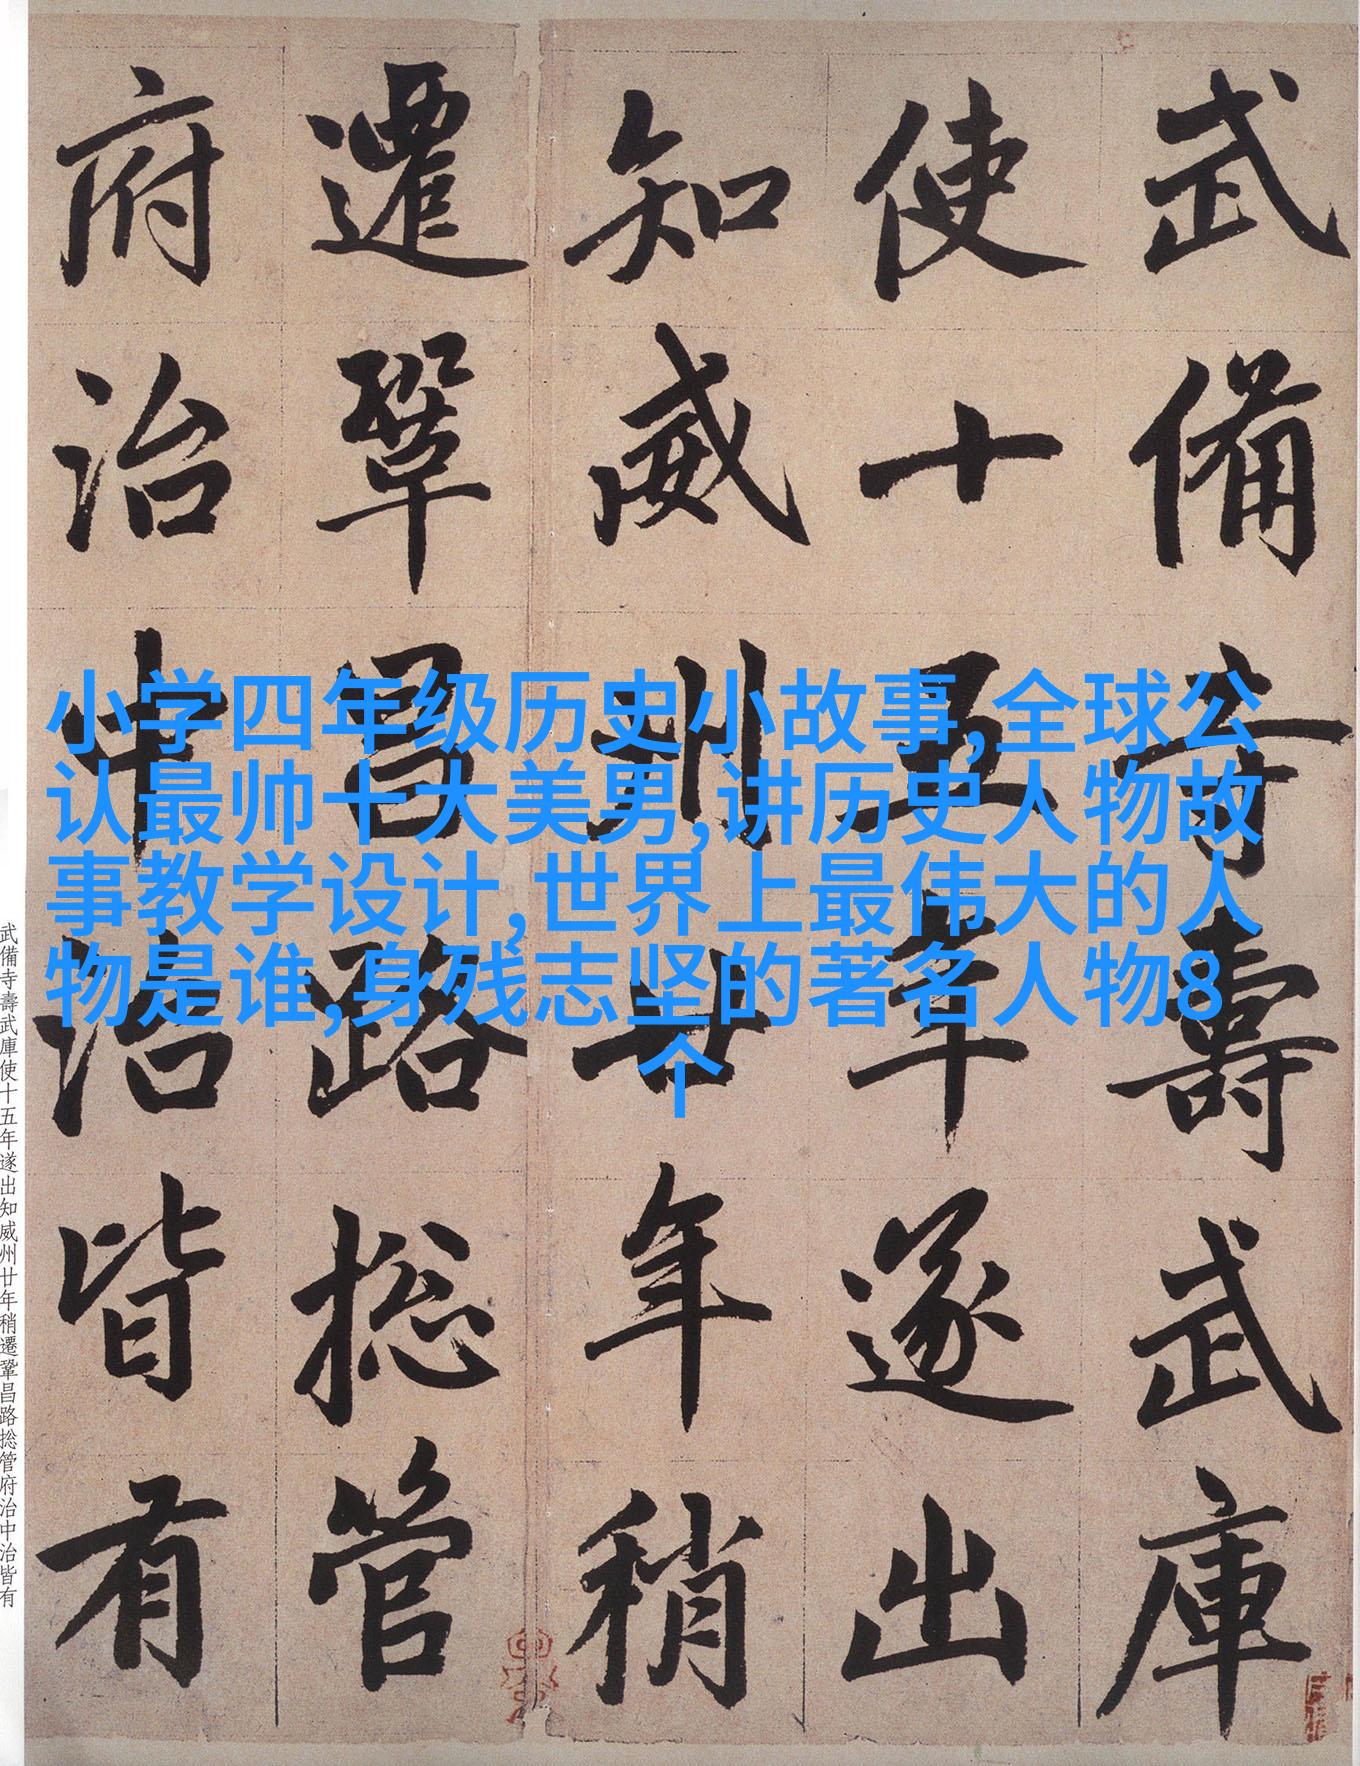 武備寺壽武庫
使十五年遂出
知威州廿年稍
遷鞏昌路捴管
府治中治皆有
小学四年级历史小故事,全球公
认最帅十大美男,讲历史人物故
事教学设计,世界上最伟大的人
物是谁,身残志坚的著名人物8
个
武備寺壽武庫使十五年遂出知威州廿年稍遷鞏昌路捴管府治中治皆有